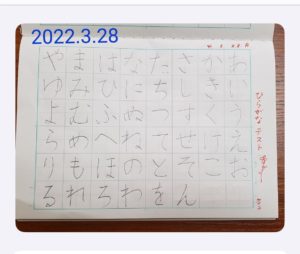 2022.3.28
ひらがな テスト
あいうえお
かきくけこ
さしすせそ
たちつてと
なにぬねの
はひふへほ
まみむめも
やゆよらり
るれろわをん